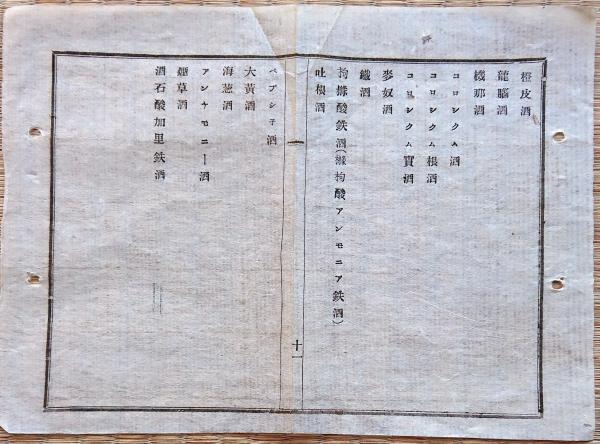 橙皮酒
龍脳酒
幾那酒
コロシクム酒
コロシクム根酒
コロシクム實酒
麥奴酒
鐵酒
拘櫞酸鉄酒(櫞拘酸アンモニア鉄酒)
吐根酒
十一
ペプシチ酒
大黄酒
海葱酒
アンチモニー酒
烟草酒
酒石酸加里鉄酒